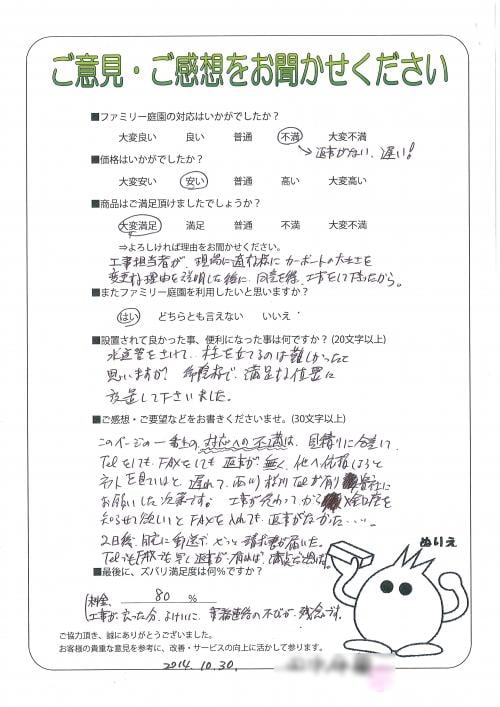 ご意見・ご感想をお聞かせください
■ファミリー庭園の対応はいかがでしたか？
大変良い 良い 普通 不満 大変不満
→返事がない、遅い！
■価格はいかがでしたか？
大変安い 安い 普通 高い 大変高い
■商品はご満足頂けましたでしょうか？
大変満足 満足 普通 不満 大変不満
⇒よろしければ理由をお聞かせください。
工事担当者が、現場に適す様にカーポートの大きさを
変更な理由を説明した後に、同意を得、工事をして下さたから。
■またファミリー庭園を利用したいと思いますか？
はい どちらとも言えない いいえ
■設置されて良かった事、便利になった事は何ですか？(20文字以上)
水道管をさけて、柱を立てるのは難しかったと
思いますが? 御陰様で、満足な位置に
設置して下さいました。
■ご感想・ご要望などをお書きくださいませ。(30文字以上)
このページの一番上の、対応への不満は、見積りに
Telをしても、FAXをしても 返事が無く、他へ依頼しようと
ネットを見ていると 遅れて Telが有り
お願いした次第です。工事が終わってから
知らせて欲しいとFAXを入れても、返事がなかった....。
2日後、郵送で、やっと請求書が届いた。
TelでもFAXでも早く返事が有れば、満点と思います。
■最後に、ズバリ満足度は何％ですか？
料金、 80 ％
工事が良かった分、よけいに、事務連絡の不びが、残念です。
ご協力頂き、誠にありがとうございました。
お客様の貴重な意見を参考に、改善・サービスの向上に活かして参ります。
2014.10.30.
ぬりえ